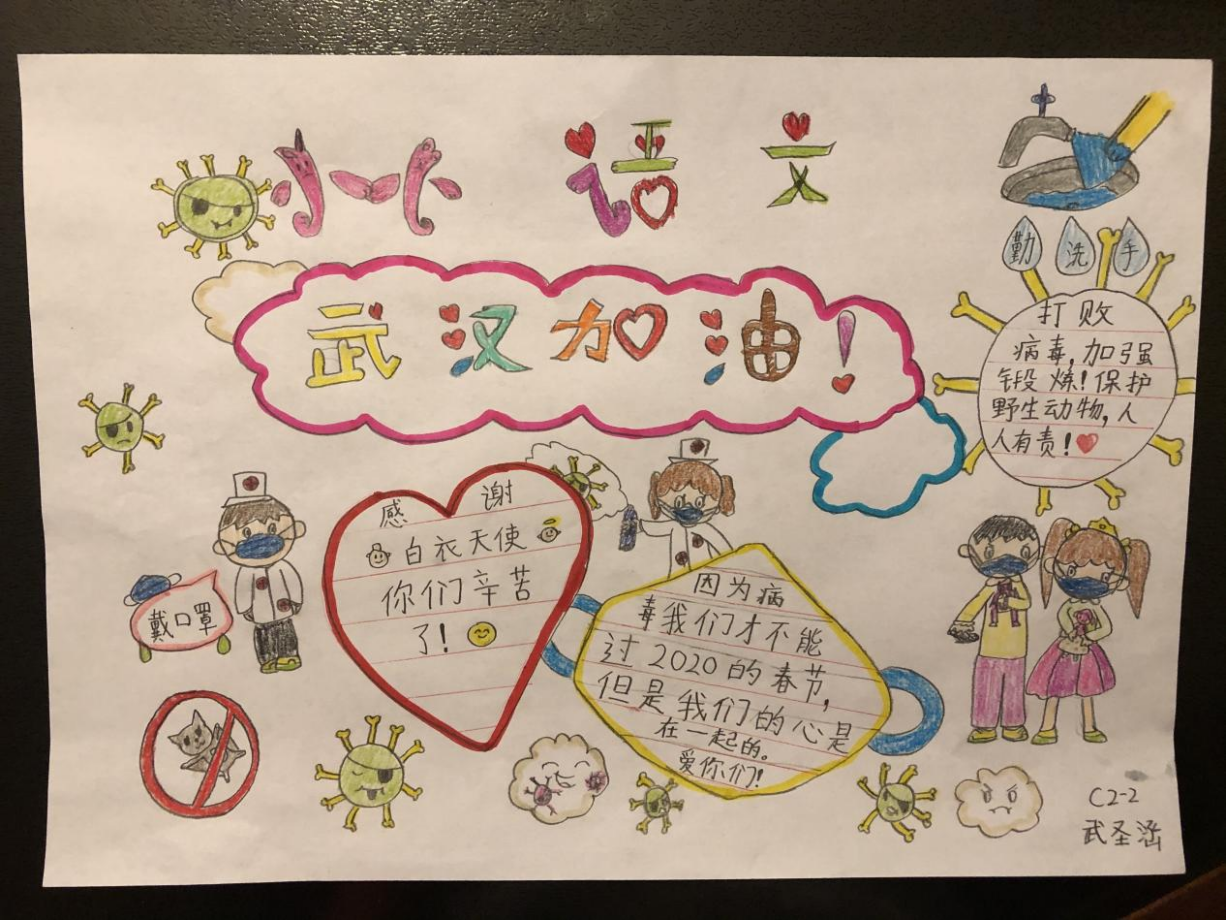 小小语文
武汉加油！
勤洗手
打败
病毒，加强
锻炼！保护
野生动物，人
人有责！
感谢
白衣天使
你们辛苦
了！
戴口罩
因为病
毒我们才不能
过2020的春节，
但是我们的心是
在一起的。
爱你们！
C2-2
武圣涵